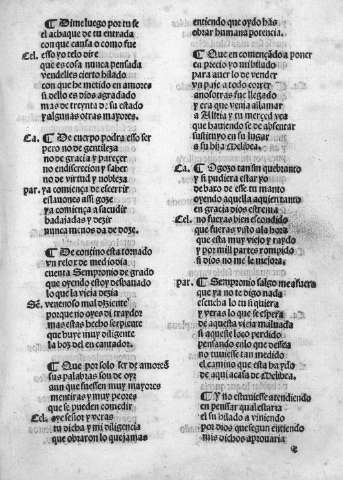 ¶ Dime luego por tu fe
el achaque de tu entrada
con que causa o como fue
Cel. esso yo telo dire
que es cosa nunca pensada
vendelles cierto hilado
con que he metido en amores
si dello es dios agradado
mas de treynta: su estado
y algunas otras mayores.
Ca. ¶ De cuerpo podra esso ser
pero no de gentileza
no de gracia y parecer
no en discrecion y saber
no de virtud y nobleza
par. ya comiença de escerrir
estauones assi goze
ya comiença a sacudir
badajadas y dezir
nunca menos da de doze.
¶ De consino esta tonado
vn relox de mediodia
cuenta Sempronio de grado
que oyendo estoy desbauado
lo que la vieja dezia
Sē. venenoso maldiziente
porque no oyes di traydor
mas estas hecho serpiente
que huye muy diligente
la boz del encantador.
¶ Que por solo ser de amores
sus palabras son de oyr
aun que fuessen muy mayores
mentiras y muy peores
que se pueden comedir
Cel. oye señor y veras
tu dicha y mi diligencia
que obraron lo que jamas
entiendo que oydo has
obrar humana potencia.
¶ Que en començādo a poner
en precio yo mi hilado
para auer lo de vender
vn paje a todo correr
anosotras fue llegado
y era que venia a llamar
a Alisa y tu merced vea
que hauiendo se de absentar
sustituyo en su lugar
a su hija Melibea.
Ca. ¶ O gozo tan sin quebranto
y si pudiera estar yo
debaxo de esse tu manto
oyendo aquella aquien tanto
en gracia dios estremo
Cel. no fueras bien escondido
que fueras visto ala hora
que esta muy viejo y raydo
y por mill partes rompido
si dios no me le mejora.
par. ¶ Sempronio salgo me a fuera
que ya no te digo nada
escucha lo tu si quiera
y veras lo que se espera
de aquesta vieja maluada
si aqueste loco perdido
pensando en lo que dessea
no tuuiesse tan medido
el camino que esta ha ydo
de aqui a casa de Melibea.
¶ Y no estuuiesse atendiendo
en pensar qual estaria
el su hilado a viniendo
por dios que segun entiendo
mis dichos aprouaria